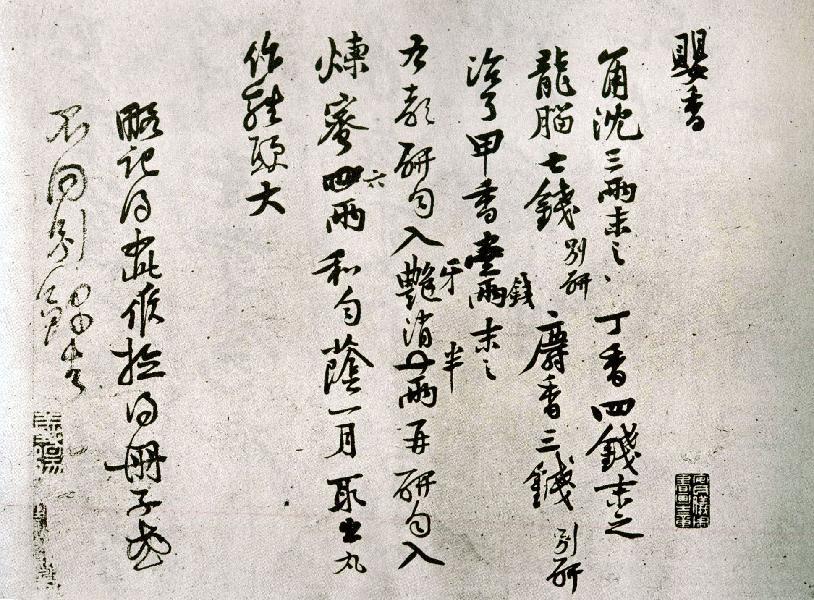 嬰香
角沈三兩末之丁香四錢末之
龍腦七錢別研麝香三錢別研
治了甲香壹錢末之
右都研勻入牙消半兩再研勻入
煉蜜六兩和勻蔭一月取出丸
作雞頭大
略記得此候檢得冊子或
不同別錄去